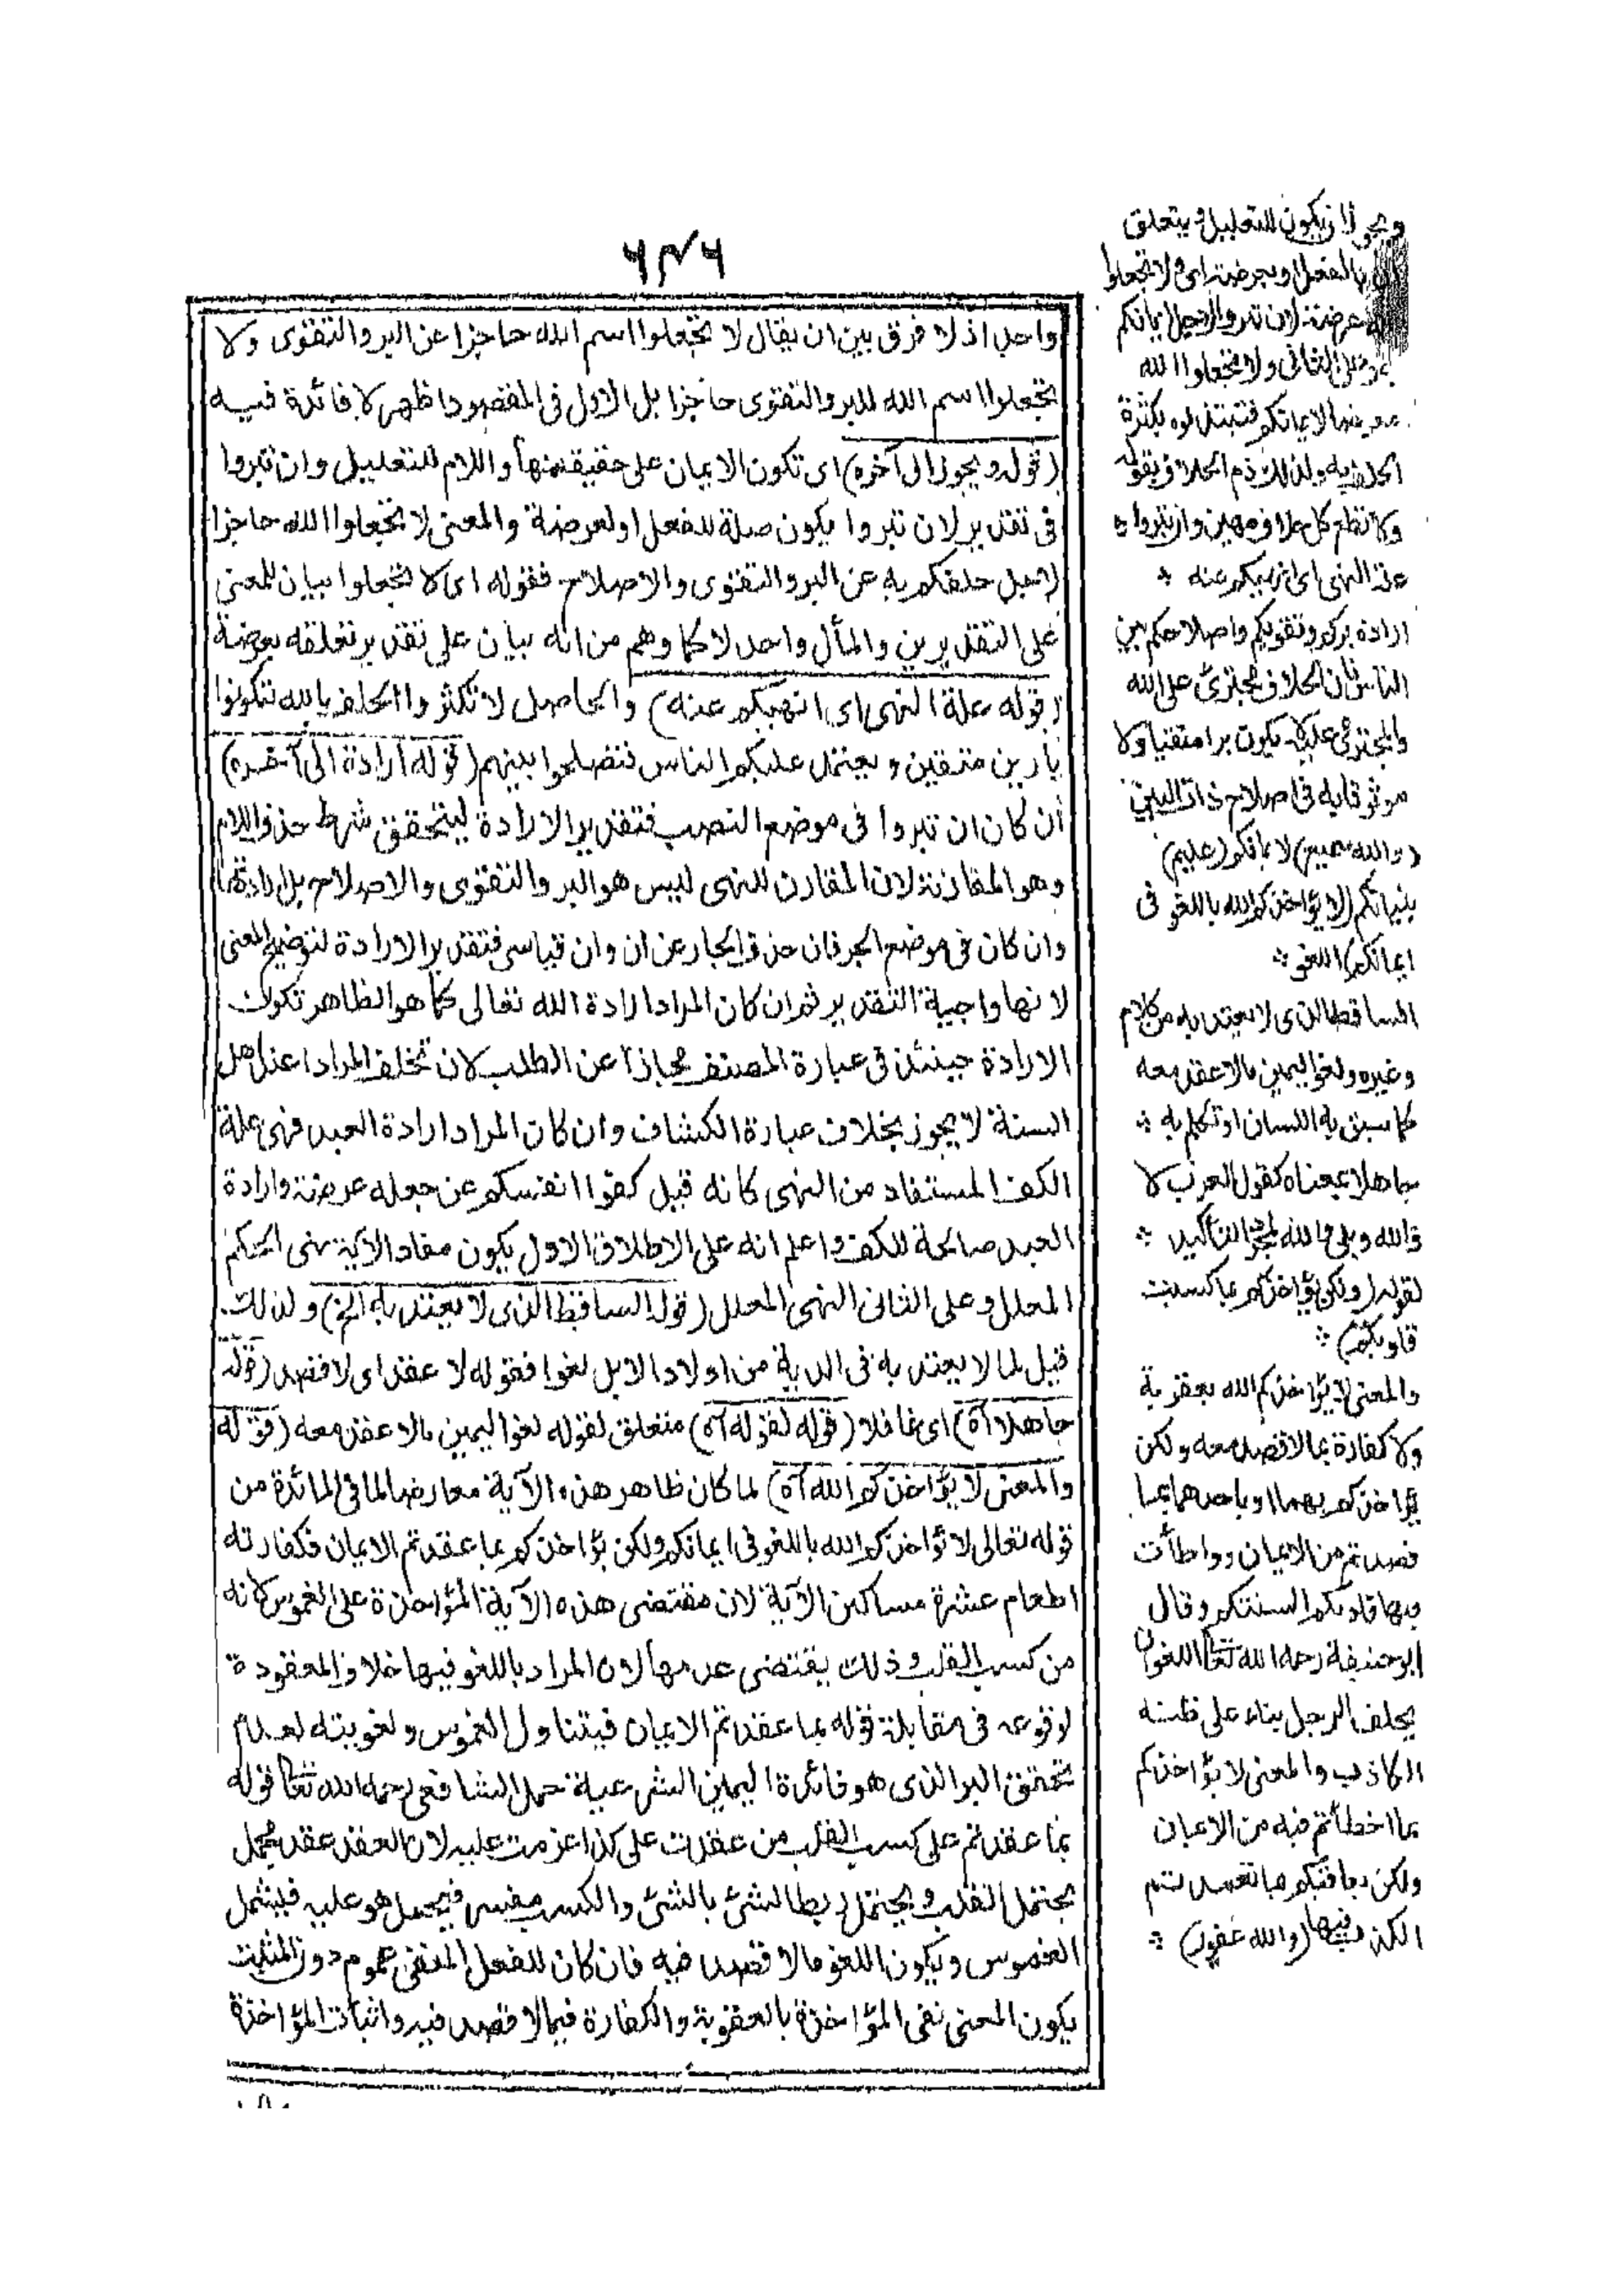 ٦٣٦
واحد اذ لا فرق بين ان يقال لا تجعلوا اسم الله حاجزا عن البر والتقوى ولا
تجعلوا اسم الله للبر والتقوى حاجزا بل الاول فى المقصود اظهر لا فائدة فيه
(قوله ويجوز الى آخره) اى تكون الايمان على حقيقتها واللام للتعليل وان تبروا
فى تقدير لان تبروا يكون صلة للفعل او لعرضة والمعنى لا تجعلوا الله حاجزا
لاجل حلفكم به عن البر والتقوى والاصلاح فقوله اى لا تجعلوا بيان للمعنى
على التقديرين والمأل واحد لا كما وهم من انه بيان على تقدير تعلقه بعرضة
(قوله علة النهى اى انهيكم عنه) والحاصل لا تكثروا الحلف بالله تكونوا
بارين متقين ويعتمد عليكم الناس فتصلحوا بينهم (قوله ارادة الى آخره)
ان كان ان تبروا فى موضع النصب فتقدير الارادة ليتحقق شرط حذف اللام
وهو المقارنة لان المقارن للنهى ليس هو البر والتقوى والاصلاح بل ارادتها
وان كان فى موضع الجر فان حذف الجار عن ان وان قياسى فتقدير الارادة لتوضيح المعنى
لا نها واجبة التقدير ثم ان كان المراد ارادة الله تعالى كما هو الظاهر تكون
الارادة حينئذ فى عبارة المصنف مجازا عن الطلب لان تخلف المراد عند اهل
السنة لا يجوز بخلاف عبارة الكشاف وان كان المراد ارادة العبد فهى علة
الكف المستفاد من النهى كانه قيل كفوا انفسكم عن جعله عرضة وارادة
العبد صالحة للكف واعلم انه على الاطلاق الاول يكون مفاد الآية نهى الحكم
المعلل وعلى الثانى النهى المعلل (قوله الساقط الذى لا يعتد به الخ) ولذلك
قيل لما لا يعتد به فى الدية من اولاد الابل لغوا فقوله لا عقد اى لا قصد (قوله
جاهلا آه) اى غافلا (قوله لقوله آه) متعلق لقوله لغو اليمين مالا عقد معه (قوله
والمعنى لا يؤاخذكم الله آه) لما كان ظاهر هذه الآية معارضا لما فى المائدة من
قوله تعالى لا يؤاخذكم الله باللغو فى ايمانكم ولكن يؤاخذكم بما عقدتم الايمان فكفارته
اطعام عشرة مساكين الآية لان مقتضى هذه الآية المؤاخذة على الغموس لانه
من كسب القلب وذلك يقتضى عدمها لان المراد باللغو فيها خلاف المعقودة
لوقوعه فى مقابلة قوله بما عقدتم الايمان فيتناول الغموس ولغويته لعدم
تحقق البر الذى هو فائدة اليمين الشرعية حمل الشافعى رحمه الله تعا قوله
بما عقدتم على كسب القلب من عقدت على كذا عزمت عليه لان العقد عقد مجمل
يحتمل القلب ويحتمل ربط الشئ بالشئ والكسب مفسر فيحمل هو عليه فيشمل
الغموس ويكون اللغو مالا قصد فيه فان كان للفعل المنفى عموم دون المثبت
يكون المعنى نفى المؤاخذة بالعقوبة والكفارة فيما لا قصد فيه واثبات المؤاخذة
ويجوز ان يكون للتعليل ويتعلق
ان بالفعل او بعرضة اى ولا تجعلوا
الله عرضة لان تبروا لاجل ايمانكم
ولا تجعلوا الله
معرضا لايمانكم فتبتذلوه بكثرة
الحلف به ولذلك ذم الحلاف بقوله
ولا تطع كل حلاف مهين وان تبروا
علة النهى اى انهيكم عنه
ارادة بركم وتقويكم واصلاحكم بين
الناس فان الحلاف مجترئ على الله
والمجترئ عليه لا يكون برا متقيا ولا
موثوقا به فى اصلاح ذات البين
(والله سميع) لايمانكم (عليم)
بنياتكم (لا يؤاخذكم الله باللغو فى
ايمانكم) اللغو
الساقط الذى لا يعتد به من كلام
وغيره ولغو اليمين مالا عقد معه
كما سبق به اللسان او تكلم به
جاهلا بمعناه كقول العرب لا
والله وبلى والله لمجرد التأكيد
لقوله (ولكن يؤاخذكم بما كسبت
قلوبكم)
والمعنى لا يؤاخذكم الله بعقوبة
ولا كفارة بما لا قصد معه ولكن
يؤاخذكم بهما او باحدهما بما
قصدتم من الايمان وواطأت
فيها قلوبكم السنتكم وقال
ابو حنيفة رحمه الله تعا اللغو ان
يحلف الرجل بناء على ظنه
الكاذب والمعنى لا يؤاخذكم
بما اخطأتم فيه من الايمان
ولكن يعاقبكم بما تعمدتم
الكذب فيها (والله غفور)